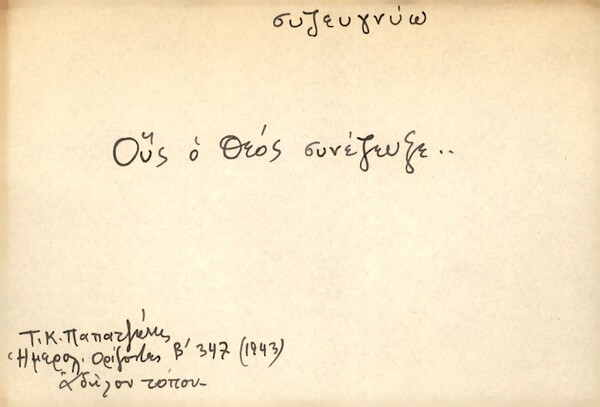 συζευγνύω
Οὓς ὁ Θεός συνέζευξε..
Τ.Κ. Παπατζώνης
Ἡμερολ. Ορίζοντες Β' 347 (1943)
ἄδηλον τόπον